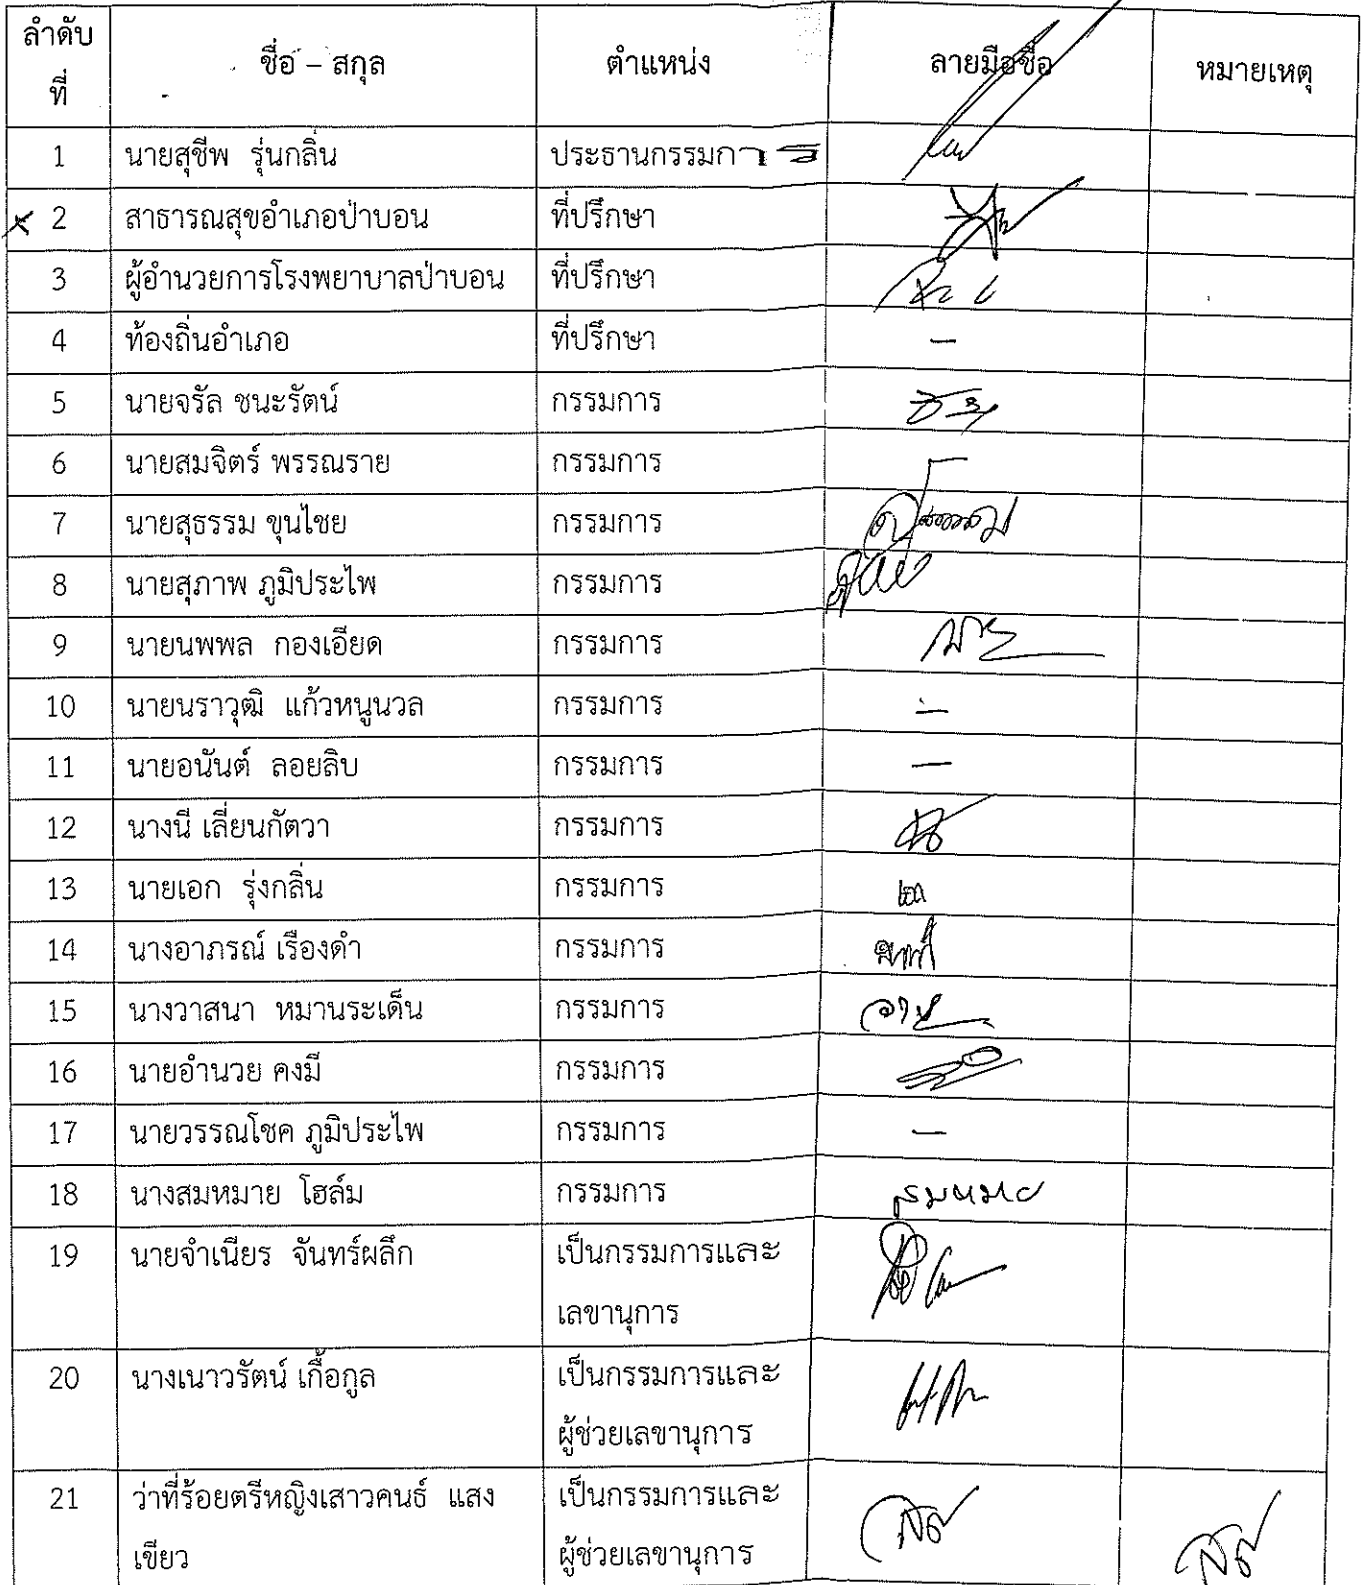 ลำดับที่ ชื่อ – สกุล ตำแหน่ง ลายมือชื่อ หมายเหตุ
1 นายสุชีพ รุ่นกลิ่น ประธานกรรมการ
2 สาธารณสุขอำเภอป่าบอน ที่ปรึกษา
3 ผู้อำนวยการโรงพยาบาลป่าบอน ที่ปรึกษา
4 ท้องถิ่นอำเภอ ที่ปรึกษา –
5 นายจรัล ชนะรัตน์ กรรมการ
6 นายสมจิตร์ พรรณราย กรรมการ
7 นายสุธรรม ขุนไชย กรรมการ
8 นายสุภาพ ภูมิประไพ กรรมการ
9 นายนพพล กองเอียด กรรมการ
10 นายนราวุฒิ แก้วหนูนวล กรรมการ –
11 นายอนันต์ ลอยลิบ กรรมการ –
12 นางนี เลี่ยนกัตวา กรรมการ
13 นายเอก รุ่งกลิ่น กรรมการ เอก
14 นางอาภรณ์ เรืองดำ กรรมการ
15 นางวาสนา หมานระเด็น กรรมการ
16 นายอำนวย คงมี กรรมการ
17 นายวรรณโชค ภูมิประไพ กรรมการ –
18 นางสมหมาย โฮล์ม กรรมการ สมหมาย
19 นายจำเนียร จันทร์ผลึก เป็นกรรมการและ
เลขานุการ
20 นางเนาวรัตน์ เกื้อกูล เป็นกรรมการและ
ผู้ช่วยเลขานุการ
21 ว่าที่ร้อยตรีหญิงเสาวคนธ์ แสง เป็นกรรมการและ
เขียว ผู้ช่วยเลขานุการ